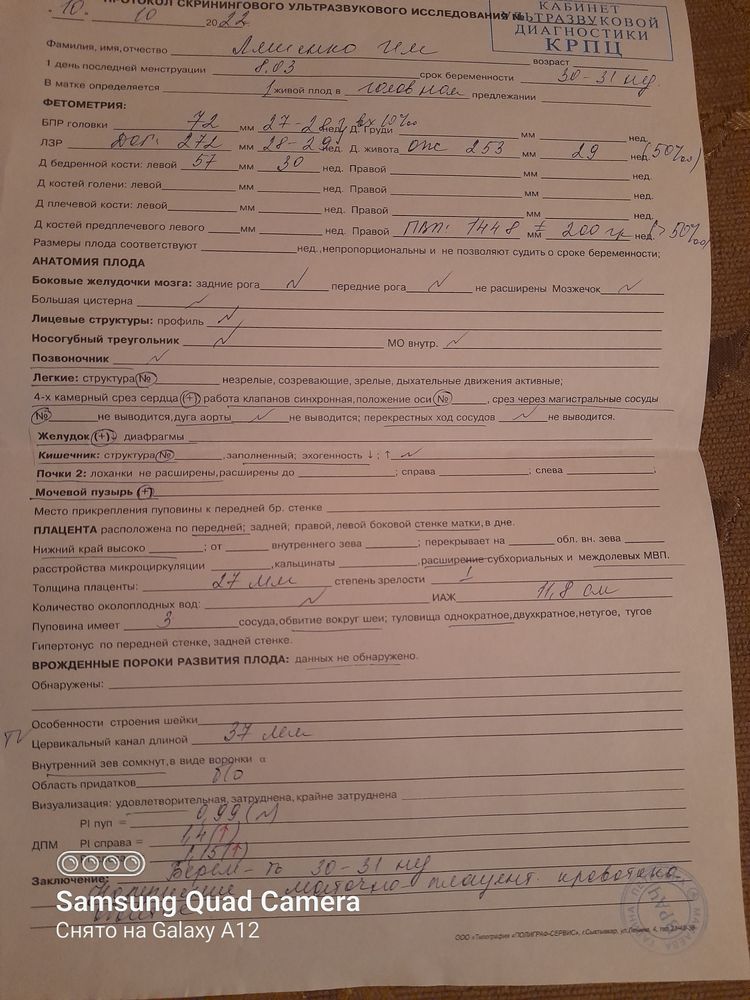 ПРОТОКОЛ СКРИНИНГОВОГО УЛЬТРАЗВУКОВОГО ИССЛЕДОВАНИЯ №
КАБИНЕТ
УЛЬТРАЗВУКОВОЙ
ДИАГНОСТИКИ
КРПЦ
10. 10 2022
Фамилия, имя, отчество возраст
1 день последней менструации 8.03 срок беременности 30-31 нед.
В матке определяется 1 живой плод в головном предлежании
ФЕТОМЕТРИЯ:
БПР головки 72 мм 27-28 нед. Д. Груди мм нед.
ЛЗР 272 мм 28-29 нед. Д. живота ОЖ 253 мм 29 нед. (50‰)
Д бедренной кости: левой 57 мм 30 нед. Правой мм нед.
Д костей голени: левой мм нед. Правой мм нед.
Д плечевой кости: левой мм нед. Правой мм нед.
Д костей предплечевого левого мм нед. Правой 1448 мм ± 200 гр нед. (>50‰)
Размеры плода соответствуют нед., непропорциональны и не позволяют судить о сроке беременности;
АНАТОМИЯ ПЛОДА
Боковые желудочки мозга: задние рога N передние рога N не расширены Мозжечок N
Большая цистерна N
Лицевые структуры: профиль N
Носогубный треугольник N МО внутр. N
Позвоночник N
Легкие: структура № незрелые, созревающие, зрелые, дыхательные движения активные;
4-х камерный срез сердца (+) работа клапанов синхронная, положение оси № , срез через магистральные сосуды
№ не выводится, дуга аорты N не выводится; перекрестных ход сосудов N не выводится.
Желудок (+) диафрагмы
Кишечник: структура № , заполненный; эхогенность ↓ ; ↑ N
Почки 2: лоханки не расширены, расширены до ; справа ; слева ;
Мочевой пузырь (+)
Место прикрепления пуповины к передней бр. стенке
ПЛАЦЕНТА расположена по передней; задней; правой, левой боковой стенке матки, в дне.
Нижний край высоко ; от внутреннего зева ; перекрывает на обл. вн. зева
расстройства микроциркуляции , кальцинаты , расширение субхориальных и междолевых МВП.
Толщина плаценты: 27 мм степень зрелости 1
Количество околоплодных вод: N ИАЖ 11,8 см
Пуповина имеет 3 сосуда, обвитие вокруг шеи; туловища однократное, двухкратное, нетугое, тугое
Гипертонус по передней стенке, задней стенке.
ВРОЖДЕННЫЕ ПОРОКИ РАЗВИТИЯ ПЛОДА: данных не обнаружено.
Обнаружены:
Особенности строения шейки
TV Цервикальный канал длиной 37 мм
Внутренний зев сомкнут, в виде воронки α
Область придатков б/о
Визуализация: удовлетворительная, затруднена, крайне затруднена
PI пуп = 0,99 (N)
ДПМ PI справа = 1,4 (↑)
1,15 (↑)
Заключение: Берем-ть 30-31 нед
Нарушение маточно-плацент. кровотока
ВРАЧ
Samsung Quad Camera
Снято на Galaxy A12
ООО «Типография «ПОЛИГРАФ-СЕРВИС», г.Сыктывкар, ул.Ленина, 4,